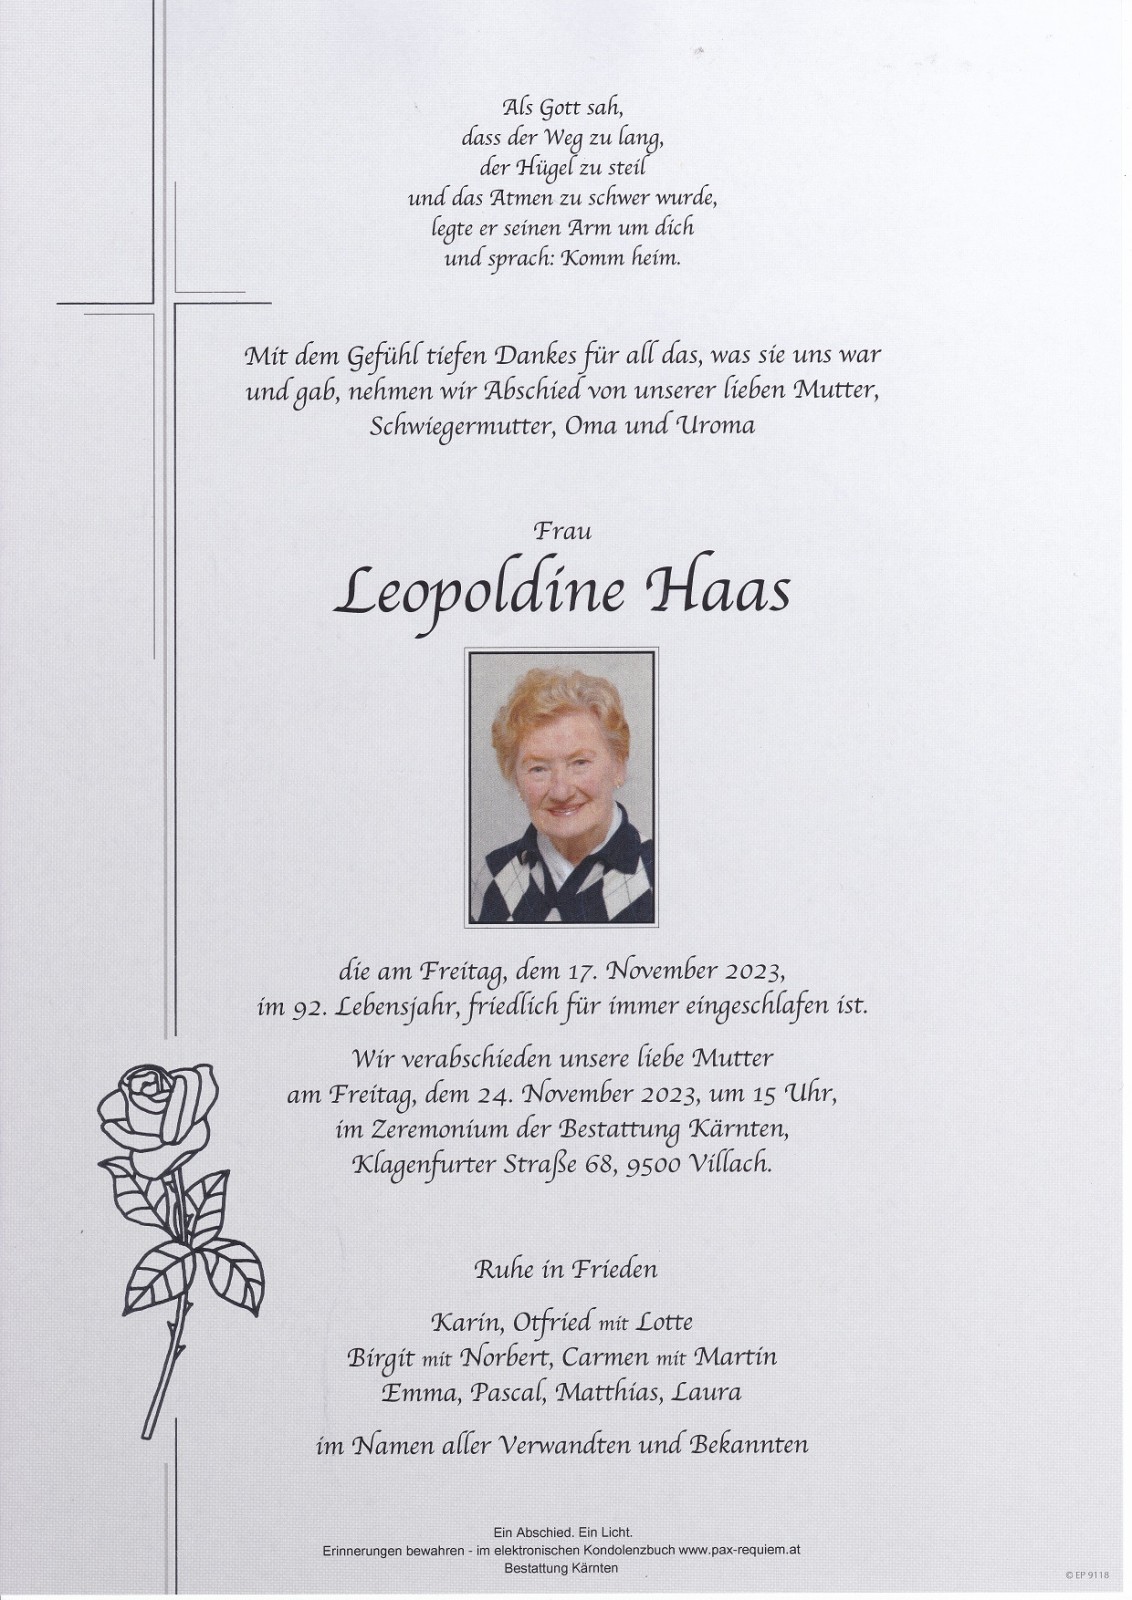 Als Gott sah,
dass der Weg zu lang,
der Hügel zu steil
und das Atmen zu schwer wurde,
legte er seinen Arm um dich
und sprach: Komm heim.
Mit dem Gefühl tiefen Dankes für all das, was sie uns war
und gab, nehmen wir Abschied von unserer lieben Mutter,
Schwiegermutter, Oma und Uroma
Frau
Leopoldine Haas
die am Freitag, dem 17. November 2023,
im 92. Lebensjahr, friedlich für immer eingeschlafen ist.
Wir verabschieden unsere liebe Mutter
am Freitag, dem 24. November 2023, um 15 Uhr,
im Zeremonium der Bestattung Kärnten,
Klagenfurter Straße 68, 9500 Villach.
Ruhe in Frieden
Karin, Otfried mit Lotte
Birgit mit Norbert, Carmen mit Martin
Emma, Pascal, Matthias, Laura
im Namen aller Verwandten und Bekannten
Ein Abschied. Ein Licht.
Erinnerungen bewahren - im elektronischen Kondolenzbuch www.pax-requiem.at
Bestattung Kärnten
© EP 9118